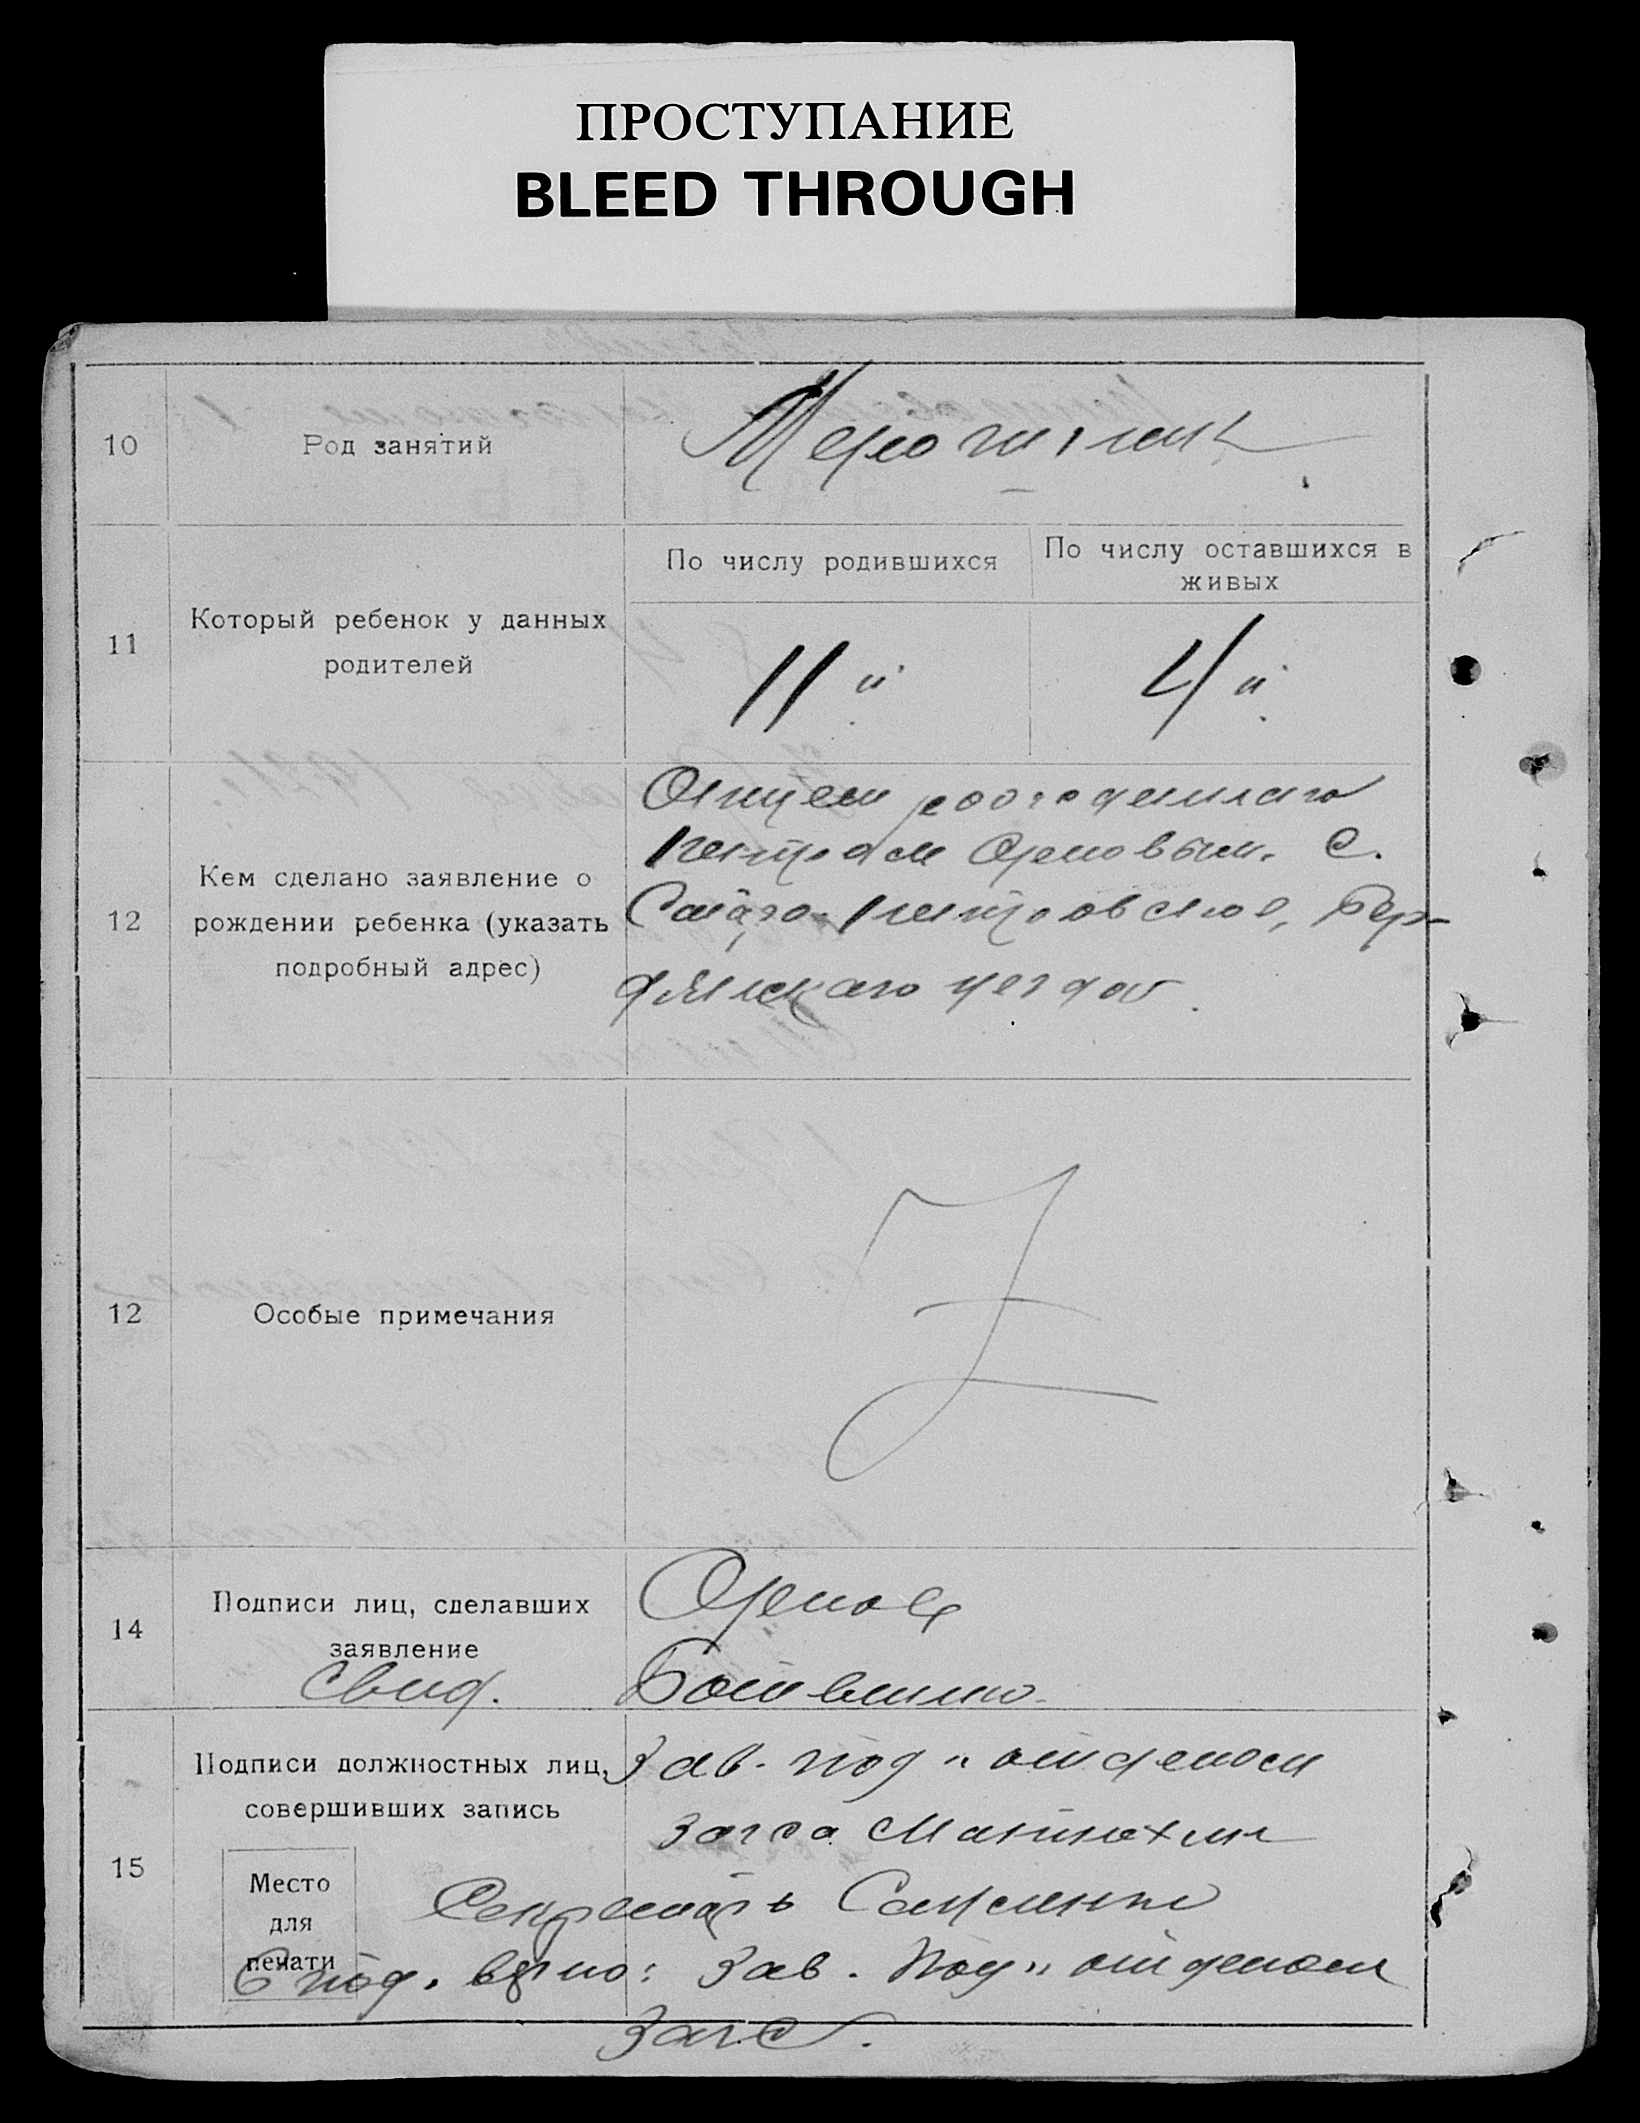 ПРОСТУПАНИЕ
BLEED THROUGH
10
Род занятий
11
Который ребенок у данных
родителей
По числу родившихся
По числу оставшихся в
живых
11й
4й
12
Кем сделано заявление о
рождении ребенка (указать
подробный адрес)
Отцем
Петром Орловым. С.
Старо-Петровское, Бер-
дянскаго уезда
12
Особые примечания
14
Подписи лиц, сделавших
заявление
Свид.
Орлов
15
Подписи должностных лиц,
совершивших запись
Место
для
печати
Зав. под" отделом
Загса
Секретарь
С под. верно: Зав. Под" отделом
Загс.